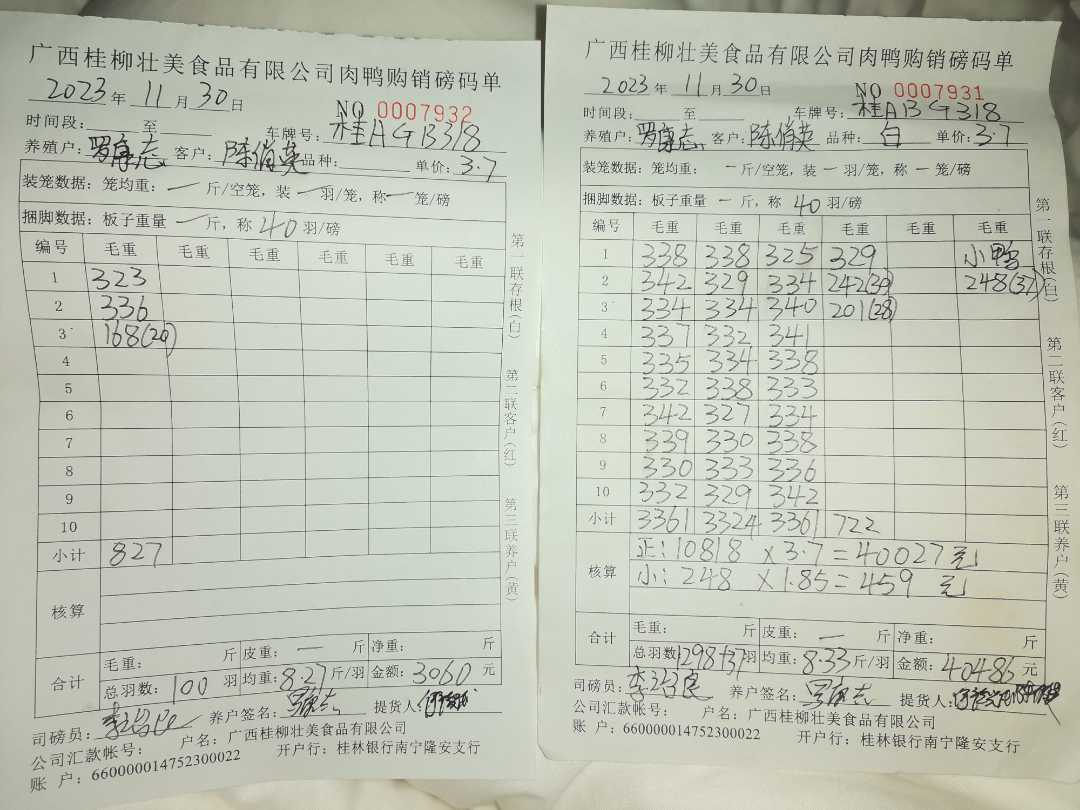 广西桂柳壮美食品有限公司肉鸭购销磅码单
2023年 11月 30日
NO 0007932
时间段: 至 车牌号: 桂AGB318
养殖户: 罗康志 客户: 陈俏英 品种: 单价: 3.7
装笼数据: 笼均重: 一 斤/空笼, 装 一 羽/笼, 称 一 笼/磅
捆脚数据: 板子重量 一 斤, 称 40 羽/磅
编号 毛重 毛重 毛重 毛重 毛重 毛重
1 323
2 336
3 168(20)
4
5
6
7
8
9
10
小计 827
核算
合计 毛重: 斤 皮重: 一 斤 净重: 斤
总羽数: 100 羽 均重: 8.27 斤/羽 金额: 3060 元
司磅员: 养户签名: 罗康志 提货人:
公司汇款帐号: 户名: 广西桂柳壮美食品有限公司
账 户: 660000014752300022 开户行: 桂林银行南宁隆安支行
第一联存根(白) 第二联客户(红) 第三联养户(黄)
广西桂柳壮美食品有限公司肉鸭购销磅码单
2023年 11月 30日
NO 0007931
时间段: 至 车牌号: 桂ABG318
养殖户: 罗康志 客户: 陈俏英 品种: 白 单价: 3.7
装笼数据: 笼均重: 一 斤/空笼, 装 一 羽/笼, 称 一 笼/磅
捆脚数据: 板子重量 一 斤, 称 40 羽/磅
编号 毛重 毛重 毛重 毛重 毛重 毛重
1 338 338 325 329 小鸭
2 342 329 334 242(30) 248(37)
3 334 334 340 201(28)
4 337 332 341
5 335 334 338
6 332 338 333
7 342 327 334
8 339 330 338
9 330 333 336
10 332 329 342
小计 3361 3324 3361 722
核算 正: 10818 × 3.7 = 40027元
小: 248 × 1.85 = 459 元
合计 毛重: 斤 皮重: 一 斤 净重: 斤
总羽数: 1298+37 羽 均重: 8.33 斤/羽 金额: 40486 元
司磅员: 养户签名: 罗康志 提货人:
公司汇款帐号: 户名: 广西桂柳壮美食品有限公司
账 户: 660000014752300022 开户行: 桂林银行南宁隆安支行
第一联存根(白) 第二联客户(红) 第三联养户(黄)